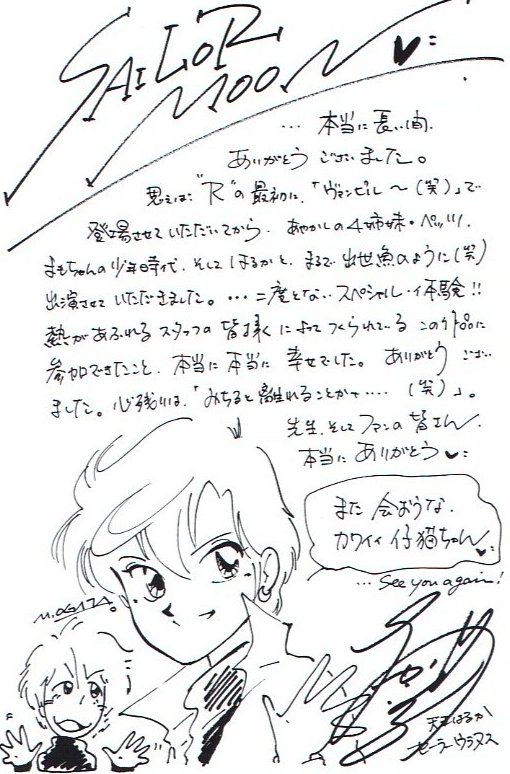 SAILOR
MOON
… 本当に長い間、
ありがとうございました。
思えば"R"の最初に、「ヴァンピル〜(笑)」で
登場させていただいてから、あやかしの4姉妹・ペッツ、
まもちゃんの少年時代、そしてはるかと、まるで出世魚のように(笑)
出演させていただきました。…二度とないスペシャルな体験!!
熱があふれるスタッフの皆様によってつくられているこの作品に
参加できたこと、本当に本当に幸せでした。ありがとうござい
ました。心残りは、「みちると離れることかナ…‥(笑)」。
先生、そしてファンの皆さん、
本当にありがとう
また会おうな、
カワイイ仔猫ちゃん
… See you again!
M.OGATA
天王はるか
セーラーウラヌス